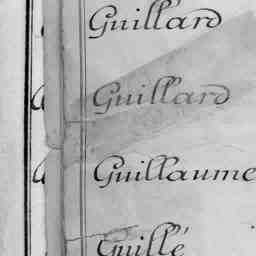 Guillard
Guillard
Guillaume
Guillé